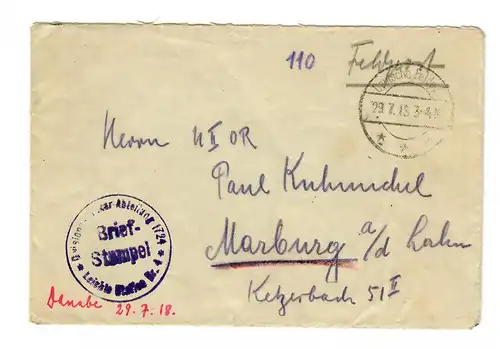 110 Feldpost
29.7.18 3-4N
Herrn
Paul Kuhmichel
Marburg a/d Lahn
Ketzerbach 51 II
Abteilung 1724
Brief-
Stempel
Leichte Staffel Nr.
29.7.18.